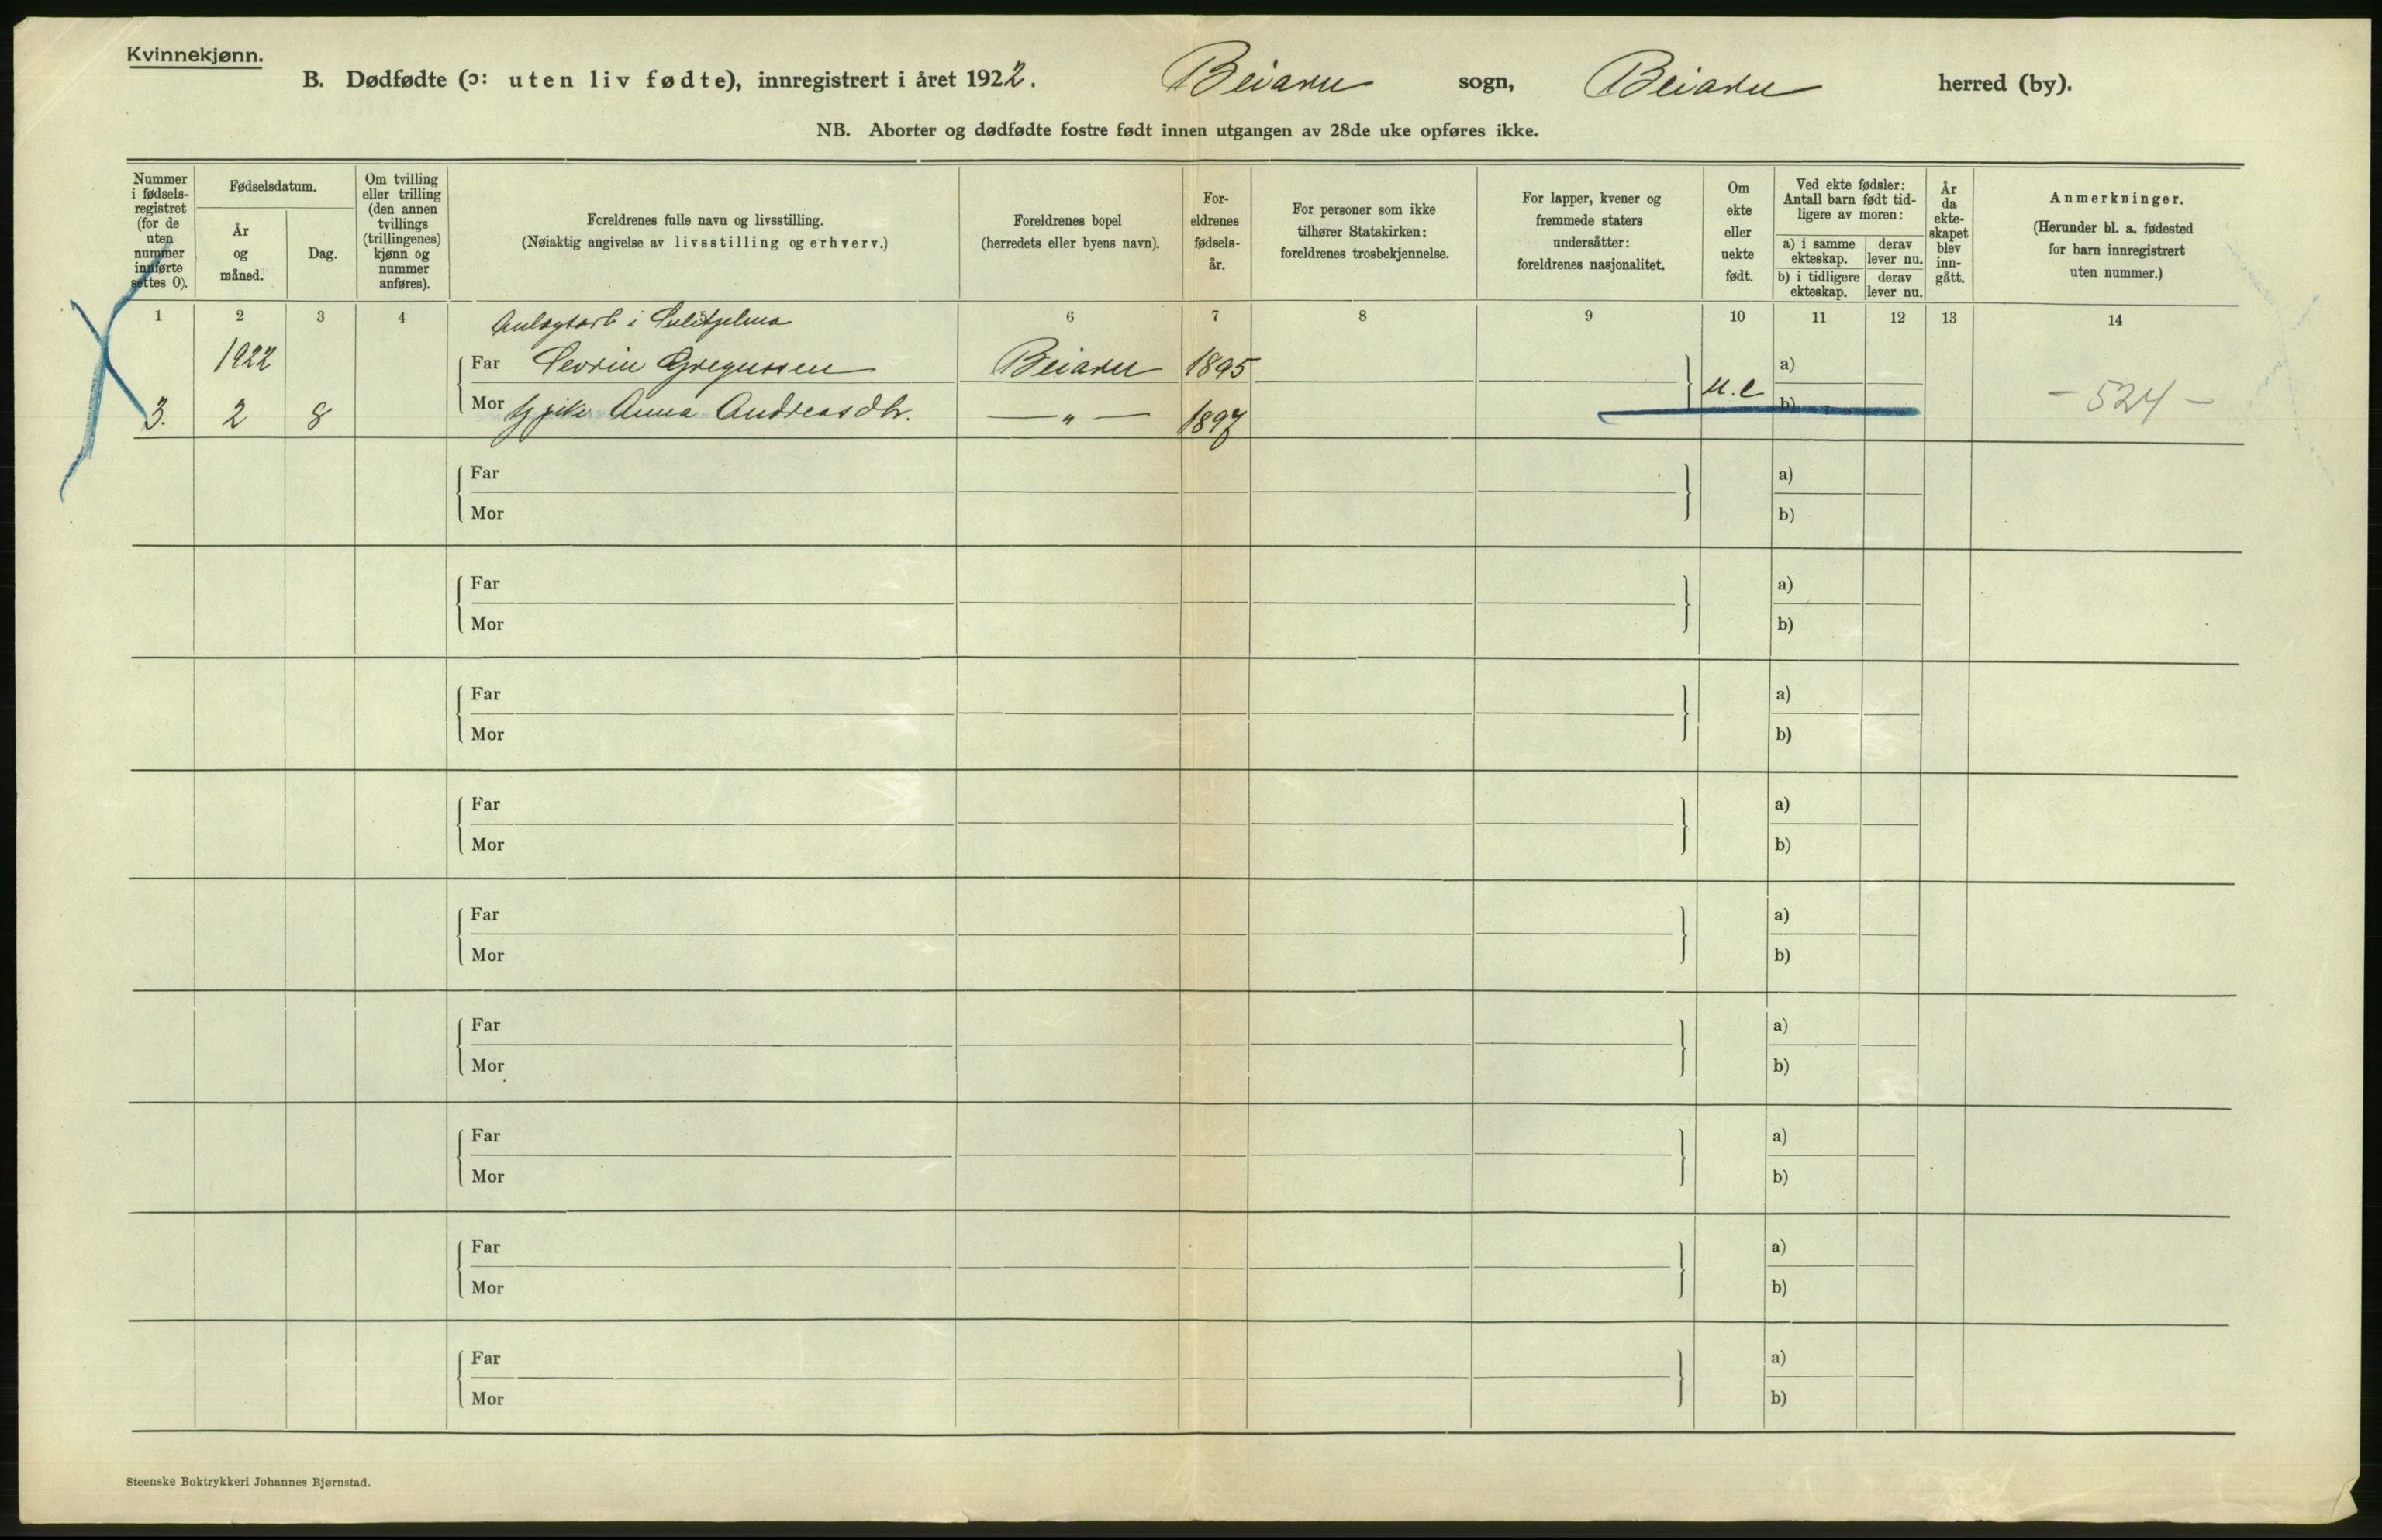 Kvinnekjønn.
B. Dødfødte (ɔ: uten liv fødte), innregistrert i året 1922. Beiarn sogn, Beiarn herred (by).
NB. Aborter og dødfødte fostre født innen utgangen av 28de uke opføres ikke.
Nummer i fødsels-registret (for de uten nummer innførte settes 0).
Fødselsdatum.
År og måned.
Dag.
Om tvilling eller trilling (den annen tvillings (trillingenes) kjønn og nummer anføres).
Foreldrenes fulle navn og livsstilling.
(Nøiaktig angivelse av livsstilling og erhverv.)
Foreldrenes bopel
(herredets eller byens navn).
For-eldrenes fødsels-år.
For personer som ikke tilhører Statskirken: foreldrenes trosbekjennelse.
For lapper, kvener og fremmede staters undersåtter: foreldrenes nasjonalitet.
Om ekte eller uekte født.
Ved ekte fødsler: Antall barn født tid-ligere av moren:
a) i samme ekteskap. derav lever nu.
b) i tidligere ekteskap. derav lever nu.
År da ekte-skapet blev inn-gått.
Anmerkninger.
(Herunder bl. a. fødested for barn innregistrert uten nummer.)
1 2 3 4 6 7 8 9 10 11 12 13 14
Anlægsarb i Sulitjelma
1922 Far Sevrin Gregussen Beiarn 1895 a)
3. 2 8 Mor Anna Andreasdtr. — " — 1897 u.e b) - 524 -
Far a)
Mor b)
Far a)
Mor b)
Far a)
Mor b)
Far a)
Mor b)
Far a)
Mor b)
Far a)
Mor b)
Far a)
Mor b)
Far a)
Mor b)
Far a)
Mor b)
Steenske Boktrykkeri Johannes Bjørnstad.